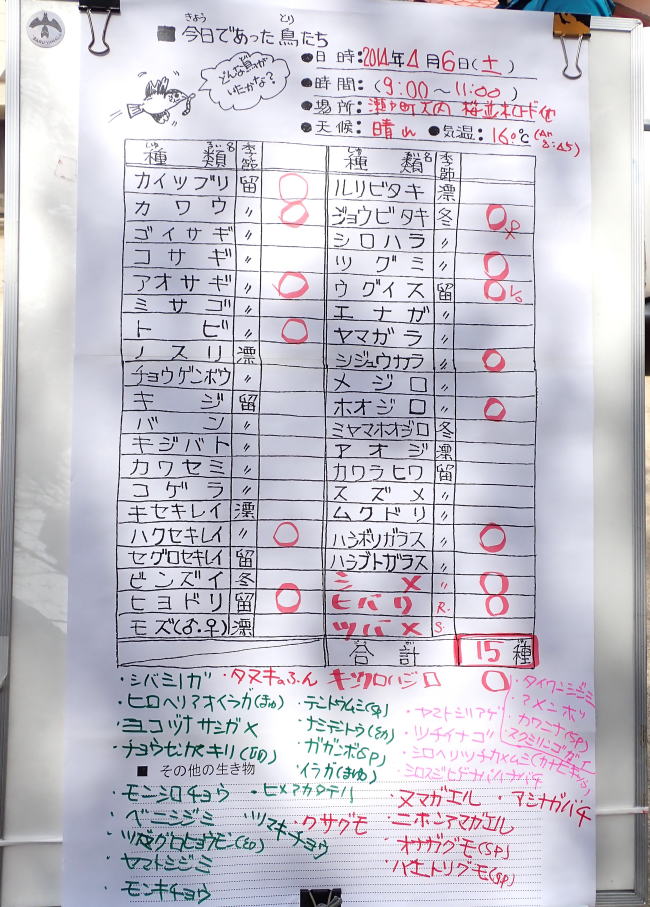 きょう とり
■ 今日であった鳥たち
どんな鳥が
いたかな?
●日時:2014年4月6日(土)
●時間:(9:00～11:00)
●場所:
●天候:晴れ ●気温:16.0℃
種類名 季節
カイツブリ 留 ○
カワウ 〃 ○
ゴイサギ 〃
コサギ 〃
アオサギ 〃 ○
ミサゴ 〃
トビ 〃 ○
ノスリ 漂
チョウゲンボウ 〃
キジ 留
バン 〃
キジバト 〃
カワセミ 〃
コゲラ 〃
キセキレイ 漂
ハクセキレイ 〃 ○
セグロセキレイ 留
ビンズイ 冬
ヒヨドリ 留 ○
モズ(♂.♀) 漂
種類名 季節
ルリビタキ 漂
ジョウビタキ 冬 ○♀
シロハラ 〃
ツグミ 〃 ○
ウグイス 留 ○
エナガ 〃
ヤマガラ 〃
シジュウカラ 〃 ○
メジロ 〃
ホオジロ 〃 ○
ミヤマホオジロ 冬
アオジ 漂
カワラヒワ 留
スズメ 〃
ムクドリ 〃
ハシボソガラス 〃 ○
ハシブトガラス 〃
シメ 〃 ○
ヒバリ R. ○
ツバメ S.
合計 15種
・タヌキのふん キンクロハジロ ○
・ヒロヘリアオイラガ(まゆ)
・ヨコヅナサシガメ
・テントウムシ(sp)
・ナミテントウ
・ガガンボ(sp)
・イラガ(まゆ)
・ツチイナゴ
・タイワンシジミ
・アメンボ
・カワニナ(sp)
・スクミリンゴガイ
■ その他の生き物
・モンシロチョウ
・ベニシジミ
・ツマグロヒョウモン
・ヤマトシジミ
・モンキチョウ
・ヒメアカタテハ
・ツマキチョウ
・クサグモ
・ヌマガエル
・アシナガバチ
・ニホンアマガエル
・オナガグモ(sp)
・ハエトリグモ(sp)